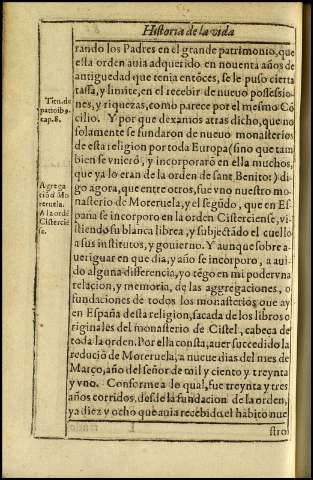 Historia de la vida
rando los Padres en el grande patrimonio, que
esta orden auia adquerido en nouenta años de
antiguedad que tenia entõces, se le puso cierta
tassa, y limite, en el recebir de nueuo possessio-
nes, y riquezas, como parece por el mesmo Cõ
cilio. Y por que dexamos atras dicho, que no
solamente se fundaron de nueuo monasterios
de esta religion por toda Europa (sino que tam
bien se vnierõ, y incorporarõ en ella muchos,
que ya lo eran de la orden de sant Benito:) di
go agora, que entre otros, fue vno nuestro mo
nasterio de Moreruela, y el segũdo, que en Es
paña se incorporo en la orden Cisterciense, vi
stiendo su blanca librea, y subjectãdo el cuello
a sus institutos, y gouierno. Y aunque sobre a-
ueriguar en que dia, y año se incorporo, a aui-
do alguna differencia, yo tẽgo en mi poder vna
relacion, y memoria, de las aggregaciones, o
fundaciones de todos los monasterios que ay
en España desta religion, sacada de los libros o
riginales del monasterio de Cistel, cabeca de
toda la orden. Por ella consta, auer succedido la
reduciõ de Moreruela, a nueue dias del mes de
Março, año del señor de mil y ciento y treynta
y vno. Conforme a lo qual, fue treynta y tres
años corridos, desde la fundacion de la orden,
ya diez y ocho que auia recebido el habito nue
stro
cap. 8.
Agrega
ciõ d Mo
reruela.
A la ordẽ
Cistercie